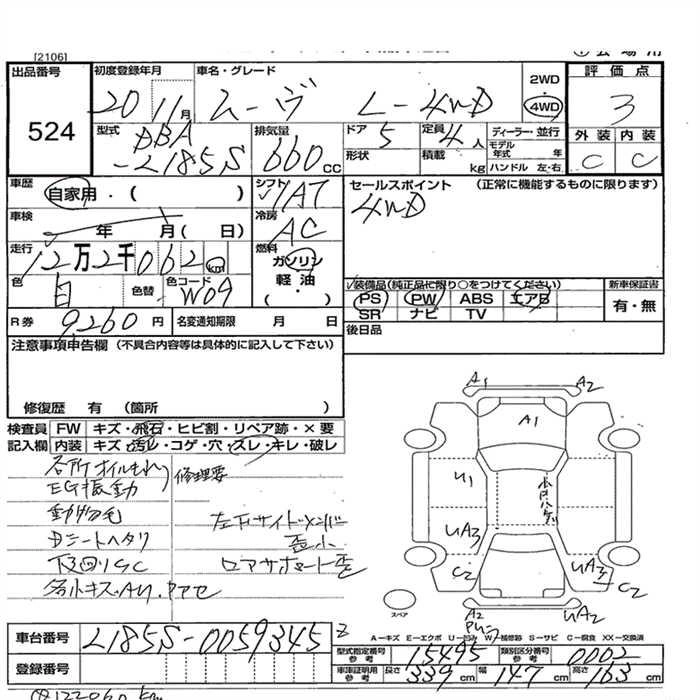 [2106]
出品番号
524
初度登録年月
20 11月
車名・グレード
ムーヴ L-4WD
2WD
4WD
評価点
3
外装 内装
C C
型式
DBA
-L185S
排気量
660 cc
ドア
5
形状
定員
4人
積載
kg
ディーラー・並行
モデル年式 年
ハンドル 左・右
車歴
自家用・( )
シフト
AT
セールスポイント (正常に機能するものに限ります)
4WD
車検
年 月( 日)
冷房
AC
走行
12万2千062 km
燃料
ガソリン
軽油
( ・ )
色
白
色替
色コード
W09
装備品(純正品に限り○をつけてください)
PS PW ABS エアB
SR ナビ TV
新車保証書
有・無
R券 9260円
名変通知期限 月 日
後日品
注意事項申告欄 (不具合内容等は具体的に記入して下さい)
修復歴 有 (箇所 )
検査員
記入欄
FW キズ・飛石・ヒビ割・リペア跡・×要
内装 キズ・汚レ・コゲ・穴・スレ・キレ・破レ
各所オイルもれ
EG振動
修理要
動物毛
Dシートヘタリ
下回りSC
左下サイドメンバー
歪小
ロアサポート歪
A1
A2
A1
U1
UA3
C2
小内ハゲ
UA3
C2
A2
UA2
スペア
A-キズ E-エクボ U-凹み W-補修跡 S-サビ C-腐食 XX-交換済
車台番号
L185S-0059345
登録番号
型式指定番号
参考
15495
類別区分番号
参考
0002
車庫証明用
参考
長さ 339cm 幅 147cm 高さ 163cm